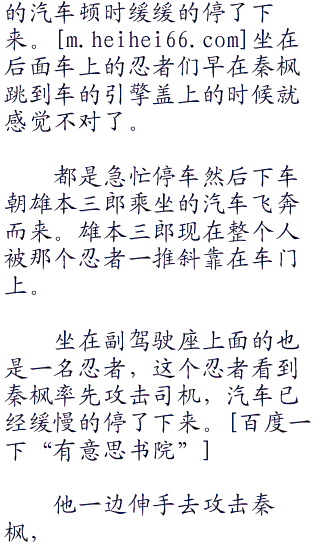 的汽车顿时缓缓的停了下
来。[m.heihei66.com]坐在
后面车上的忍者们早在秦枫
跳到车的引擎盖上的时候就
感觉不对了。
都是急忙停车然后下车
朝雄本三郎乘坐的汽车飞奔
而来。雄本三郎现在整个人
被那个忍者一推斜靠在车门
上。
坐在副驾驶座上面的也
是一名忍者，这个忍者看到
秦枫率先攻击司机，汽车已
经缓慢的停了下来。[百度一
下“有意思书院”]
他一边伸手去攻击秦
枫，